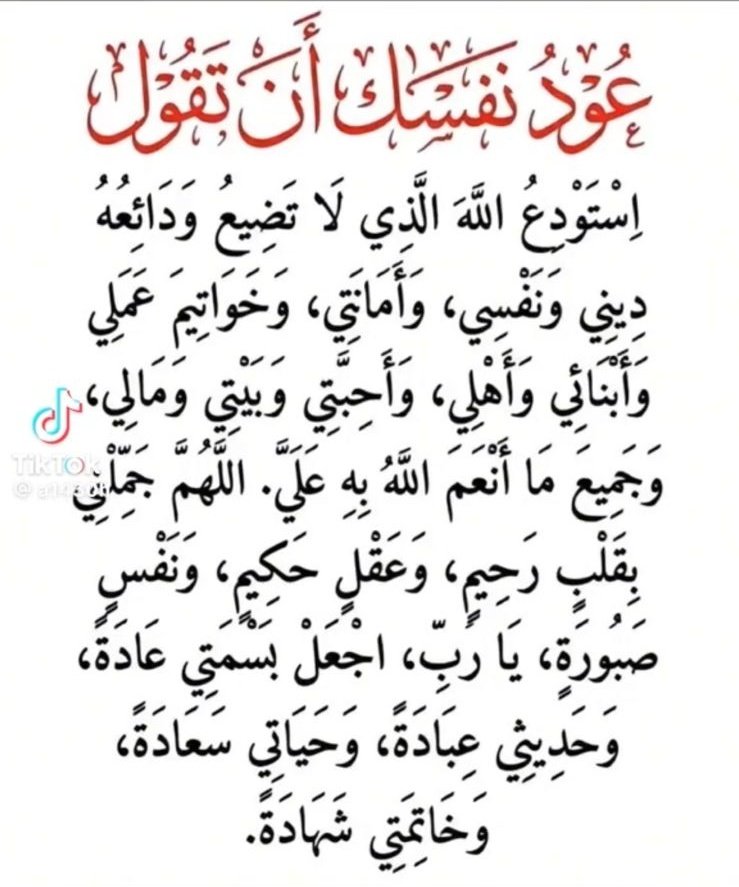 عُوْدُ نَفَسَكَ أَنْ تَقُوْل
اِسْتَوْدِعُ اللَّهَ الَّذِي لَا تَضِيعُ وَدَائِعُهُ
دِينِي وَنَفْسِي، وَأَمَانَتِي، وَخَوَاتِيمَ عَمَلِي
وَأَبْنَائِي وَأَهْلِي، وَأَحِبَّتِي وَبَيْتِي وَمَالِي،
TikTok
وَجَمِيعَ مَا أَنْعَمَ اللَّهُ بِهِ عَلَيَّ. اللَّهُمَّ جَمِّلْنِي
بِقَلْبٍ رَحِيمٍ، وَعَقْلٍ حَكِيمٍ، وَنَفْسٍ
صَبُورَةٍ، يَا رَبِّ، اجْعَلْ بَسْمَتِي عَادَةً،
وَحَدِيثِي عِبَادَةً، وَحَيَاتِي سَعَادَةً،
وَخَاتِمَتِي شَهَادَةً.